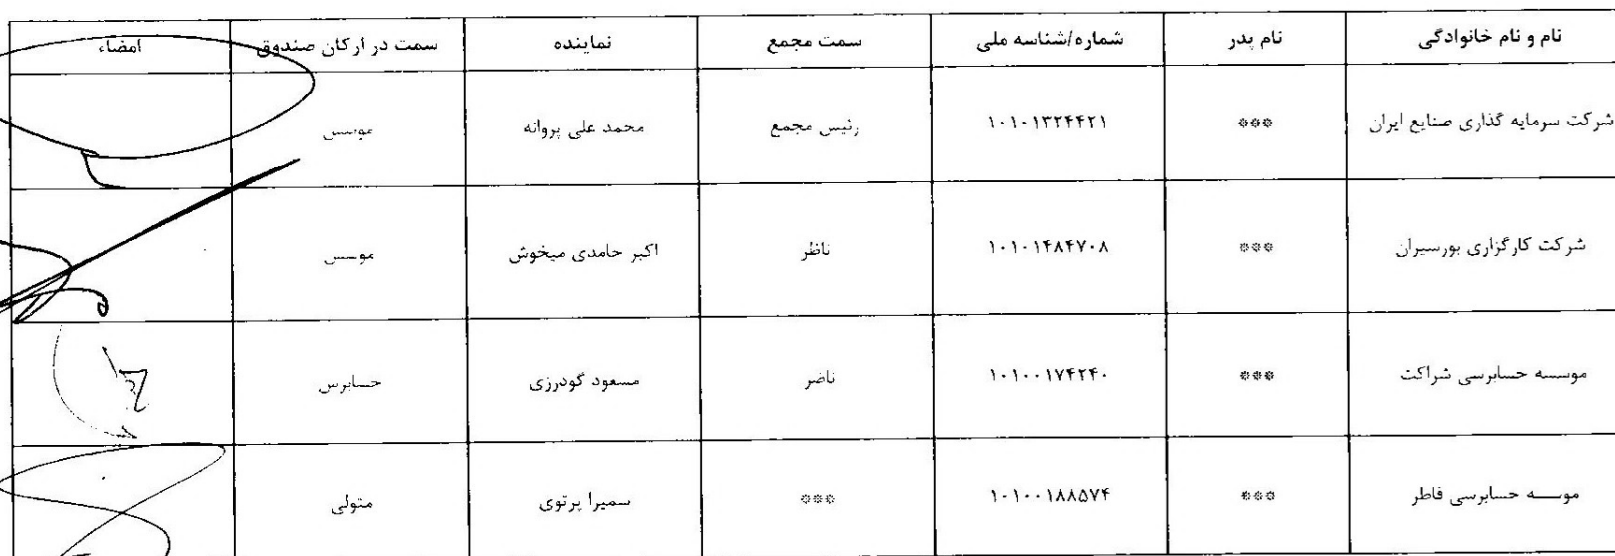 نام و نام خانوادگی نام پدر شماره/شناسه ملی سمت مجمع نماینده سمت در ارکان صندوق امضاء
شرکت سرمایه گذاری صنایع ایران *** ۱۰۱۰۱۳۲۴۴۲۱ رئیس مجمع محمد علی پروانه موسس
شرکت کارگزاری بورسیران *** ۱۰۱۰۱۴۸۴۷۰۸ ناظر اکبر حامدی میخوش موسس
موسسه حسابرسی شراکت *** ۱۰۱۰۰۱۷۴۲۴۰ ناضر مسعود گودرزی حسابرس
موسه حسابرسی فاطر *** ۱۰۱۰۰۱۸۸۵۷۴ *** سمیرا پرتوی متولی